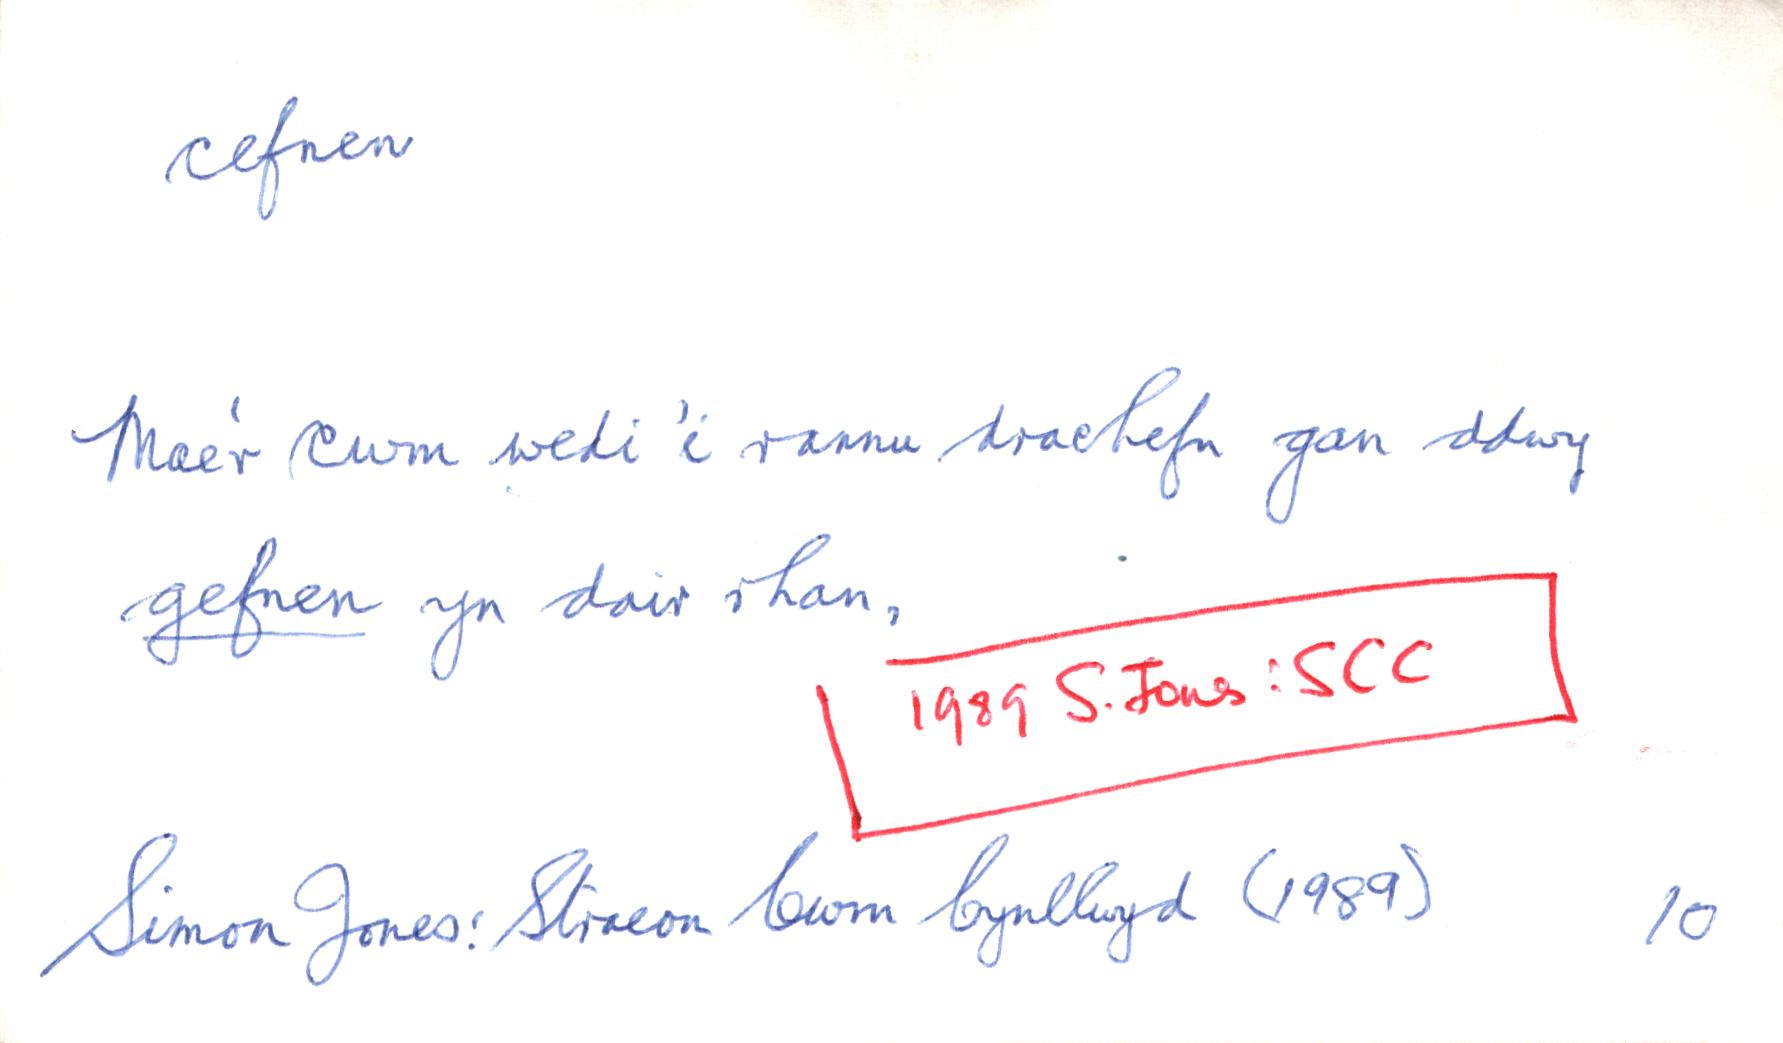 cefnen
Mae'r Cwm wedi 'i rannu drachefn gan ddwy
gefnen yn dair rhan,
1989 S. Jones : SCC
Simon Jones: Straeon Cwm Cynllwyd (1989) 10